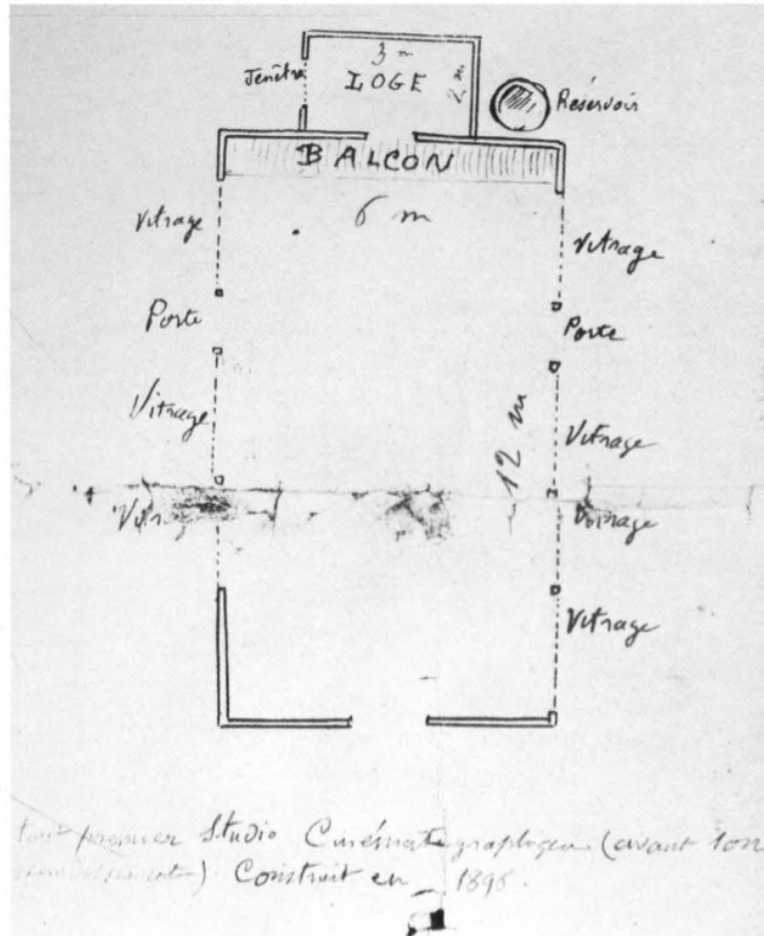 3 m
Fenêtre
LOGE
2 m
Réservoir
BALCON
6 m
Vitrage
Vitrage
Porte
Porte
Vitrage
12 m
Vitrage
Vitrage
Vitrage
premier Studio Cinématographique (avant son
) Construit en 1896.